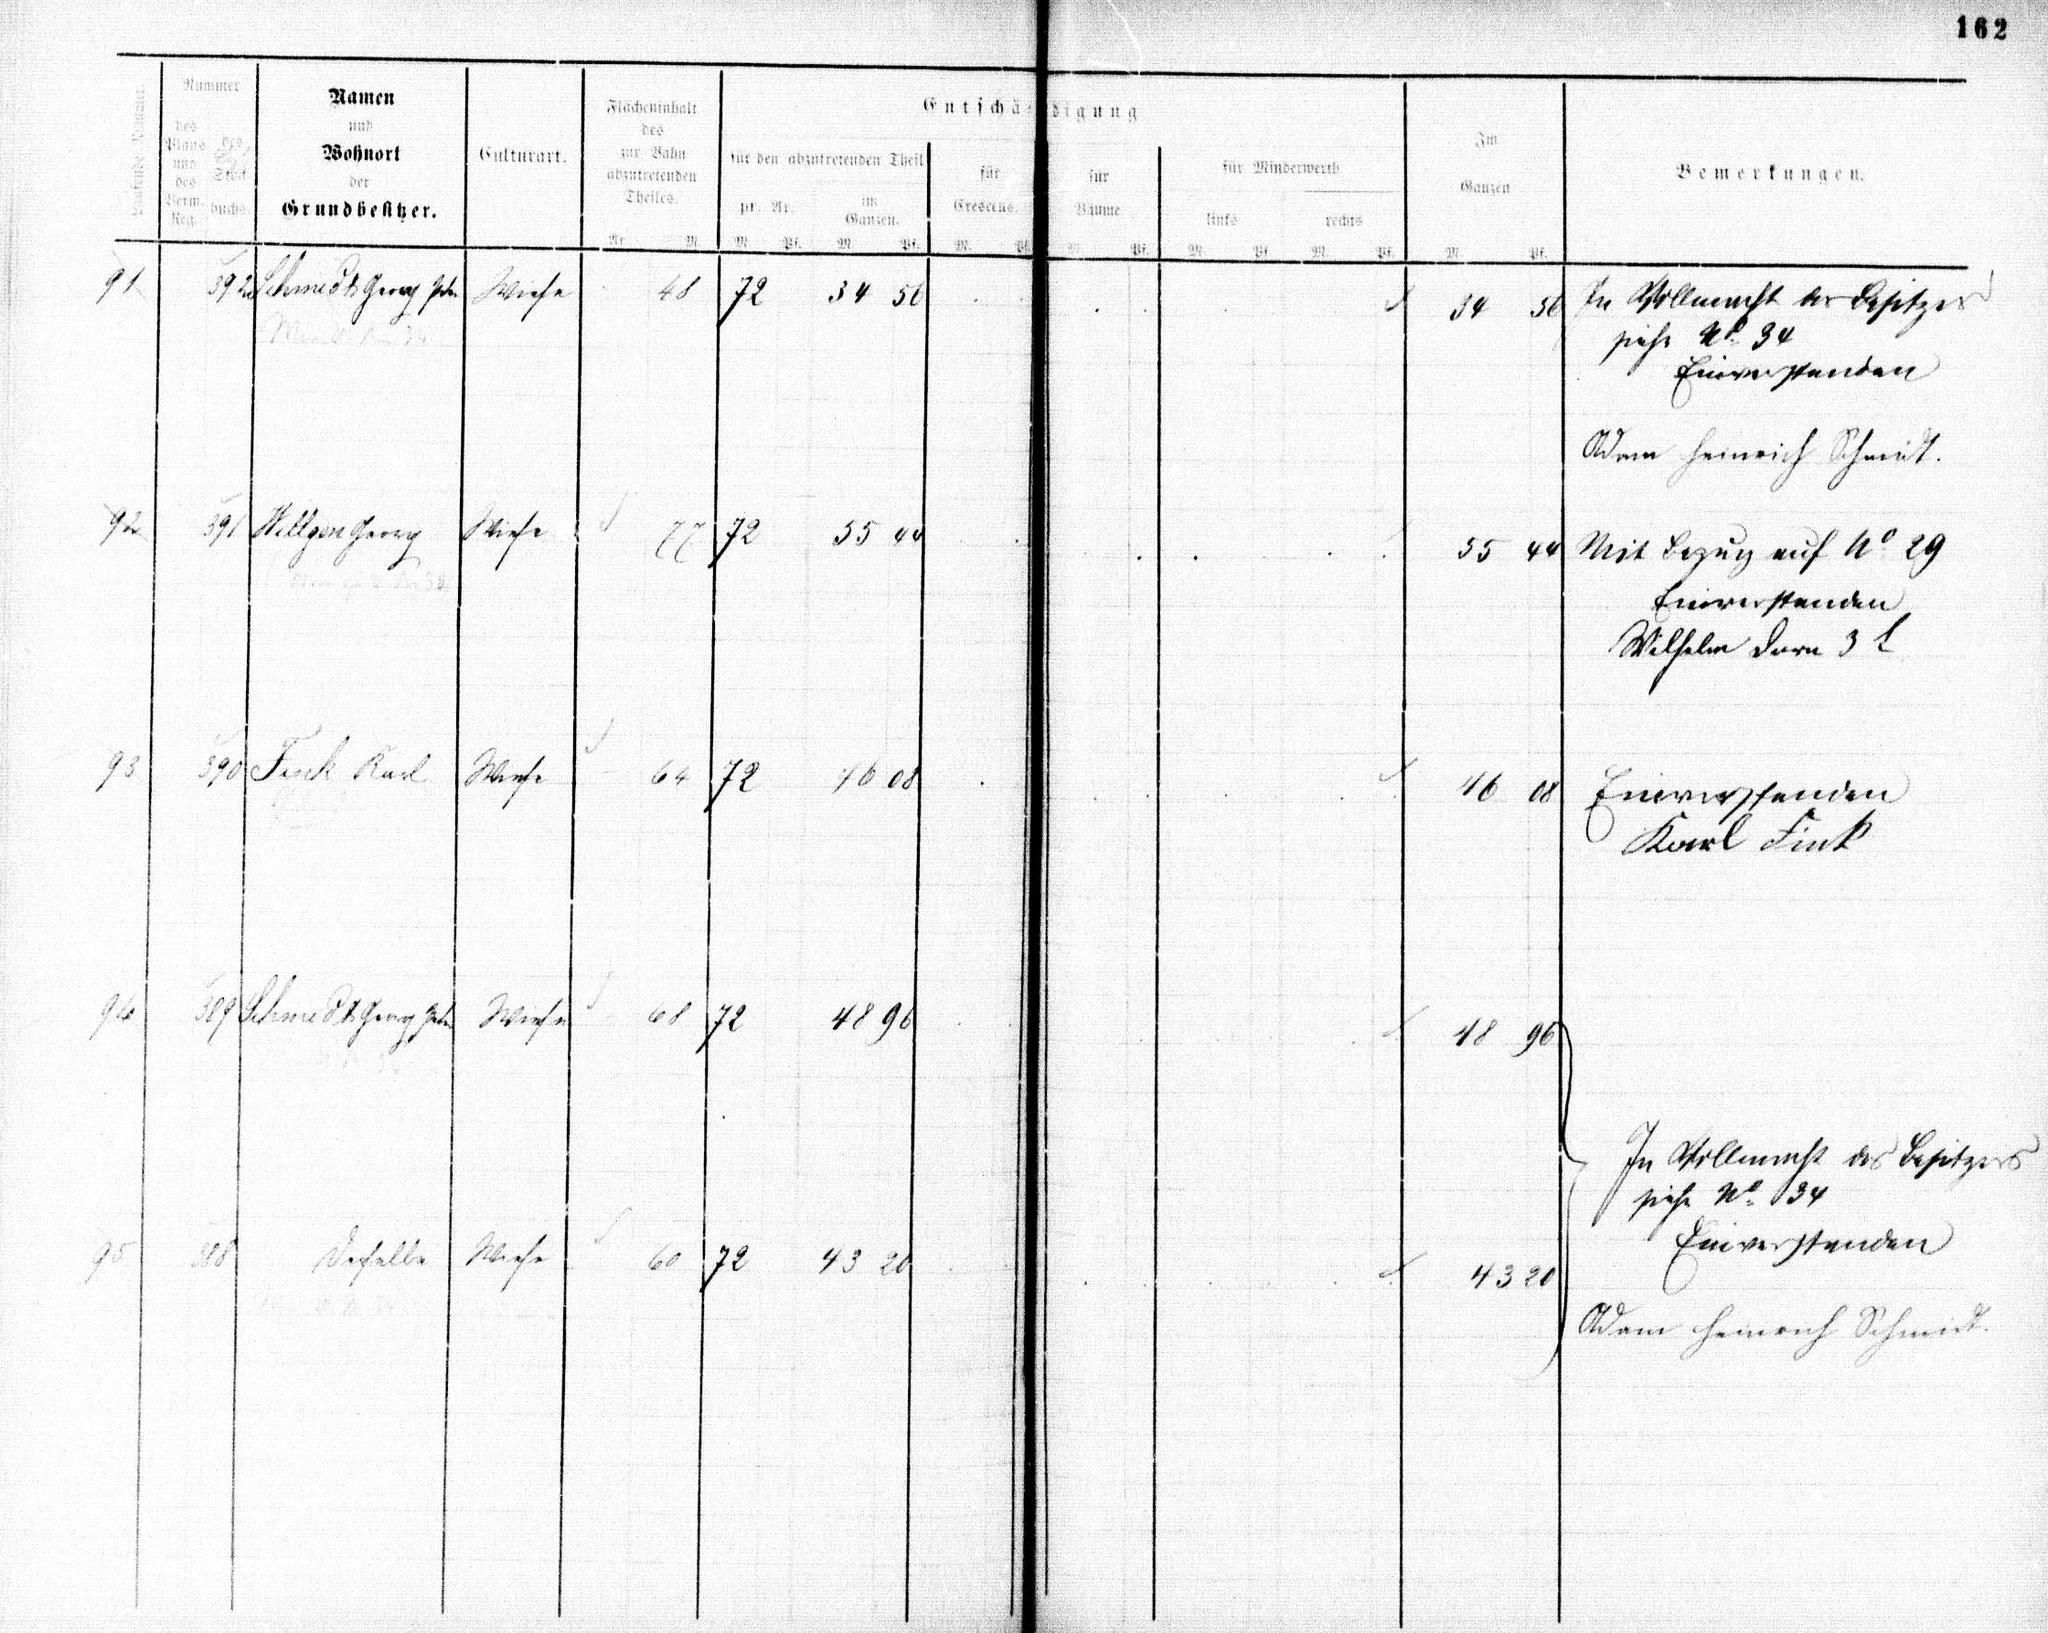 162
Laufende Nummer.
Nummer
des Plans und des Verm. Reg.
buchs.
Namen
und
Wohnort
der
Grundbesitzer.
Culturart.
Flächeninhalt
des
zur Bahn
abzutretenden
Theiles.
Ar M
Entschädigung
für den abzutretenden Theil
pr. Ar.
im Ganzen.
M Pf. M Pf.
für
Crescens.
M. Pf.
für
Bäume
M. Pf.
für Minderwerth
links rechts
M. Pf. M. Pf.
Im
Ganzen
M. Pf.
Bemerkungen.
91 392 Schmidt Georg Wiese 48 72 34 56 34 56 In Vollmacht des Besitzers
siehe No. 34
Einverstanden
Adam Heinrich Schmidt.
92 391 Hillgen Georg Wiese 77 72 55 44 55 44 Mit Bezug auf No 29
Einverstanden
Wilhelm Dorn 3t
93 390 Fink Karl Wiese 64 72 46 08 46 08 Einverstanden
Karl Fink
94 389 Schmidt Georg Wiese 68 72 48 96 48 96
In Vollmacht des Besitzers
siehe No. 34
Einverstanden
95 388 Derselbe Wiese 60 72 43 20 43 20
Adam Heinrich Schmidt.